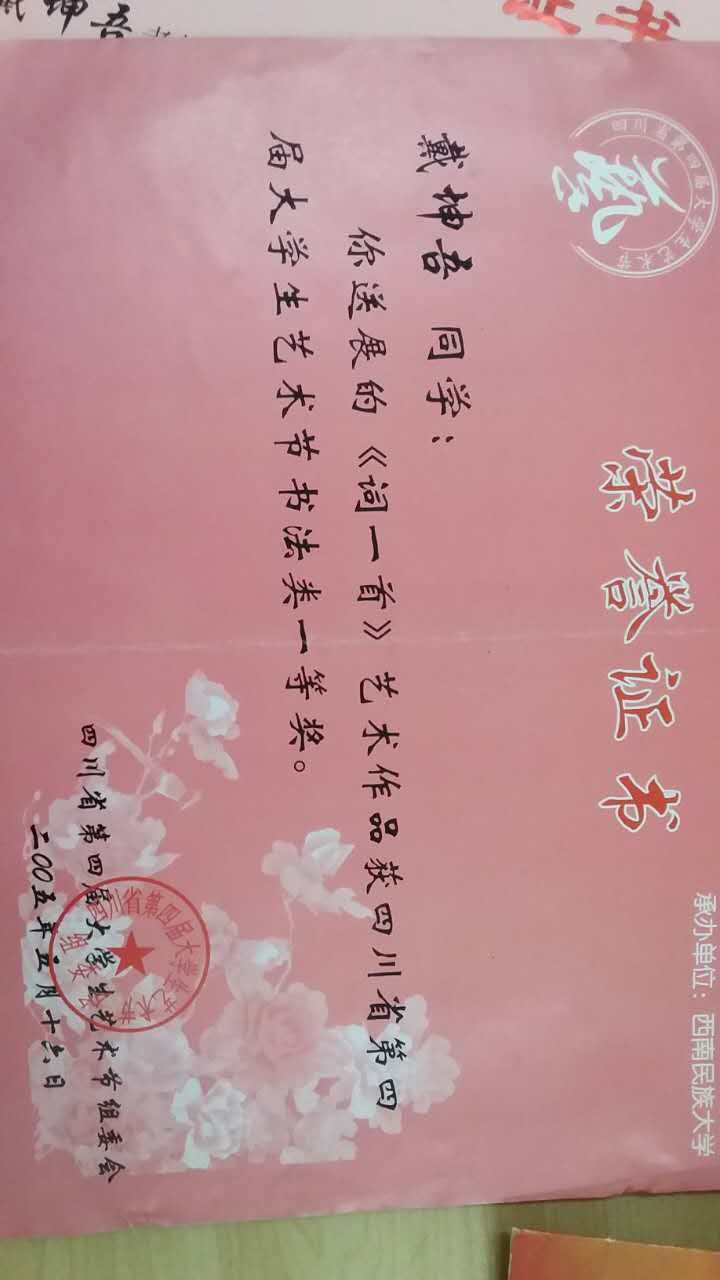 承办单位：西南民族大学
四川省第四届大学生艺术节
藝
荣誉证书
戴坤吾 同学：
你送展的《词一首》艺术作品获四川省第四
届大学生艺术节书法类一等奖。
四川省第四届大学生艺术节组委会
二00五年五月十六日
省第四届大学生艺术节
组委会